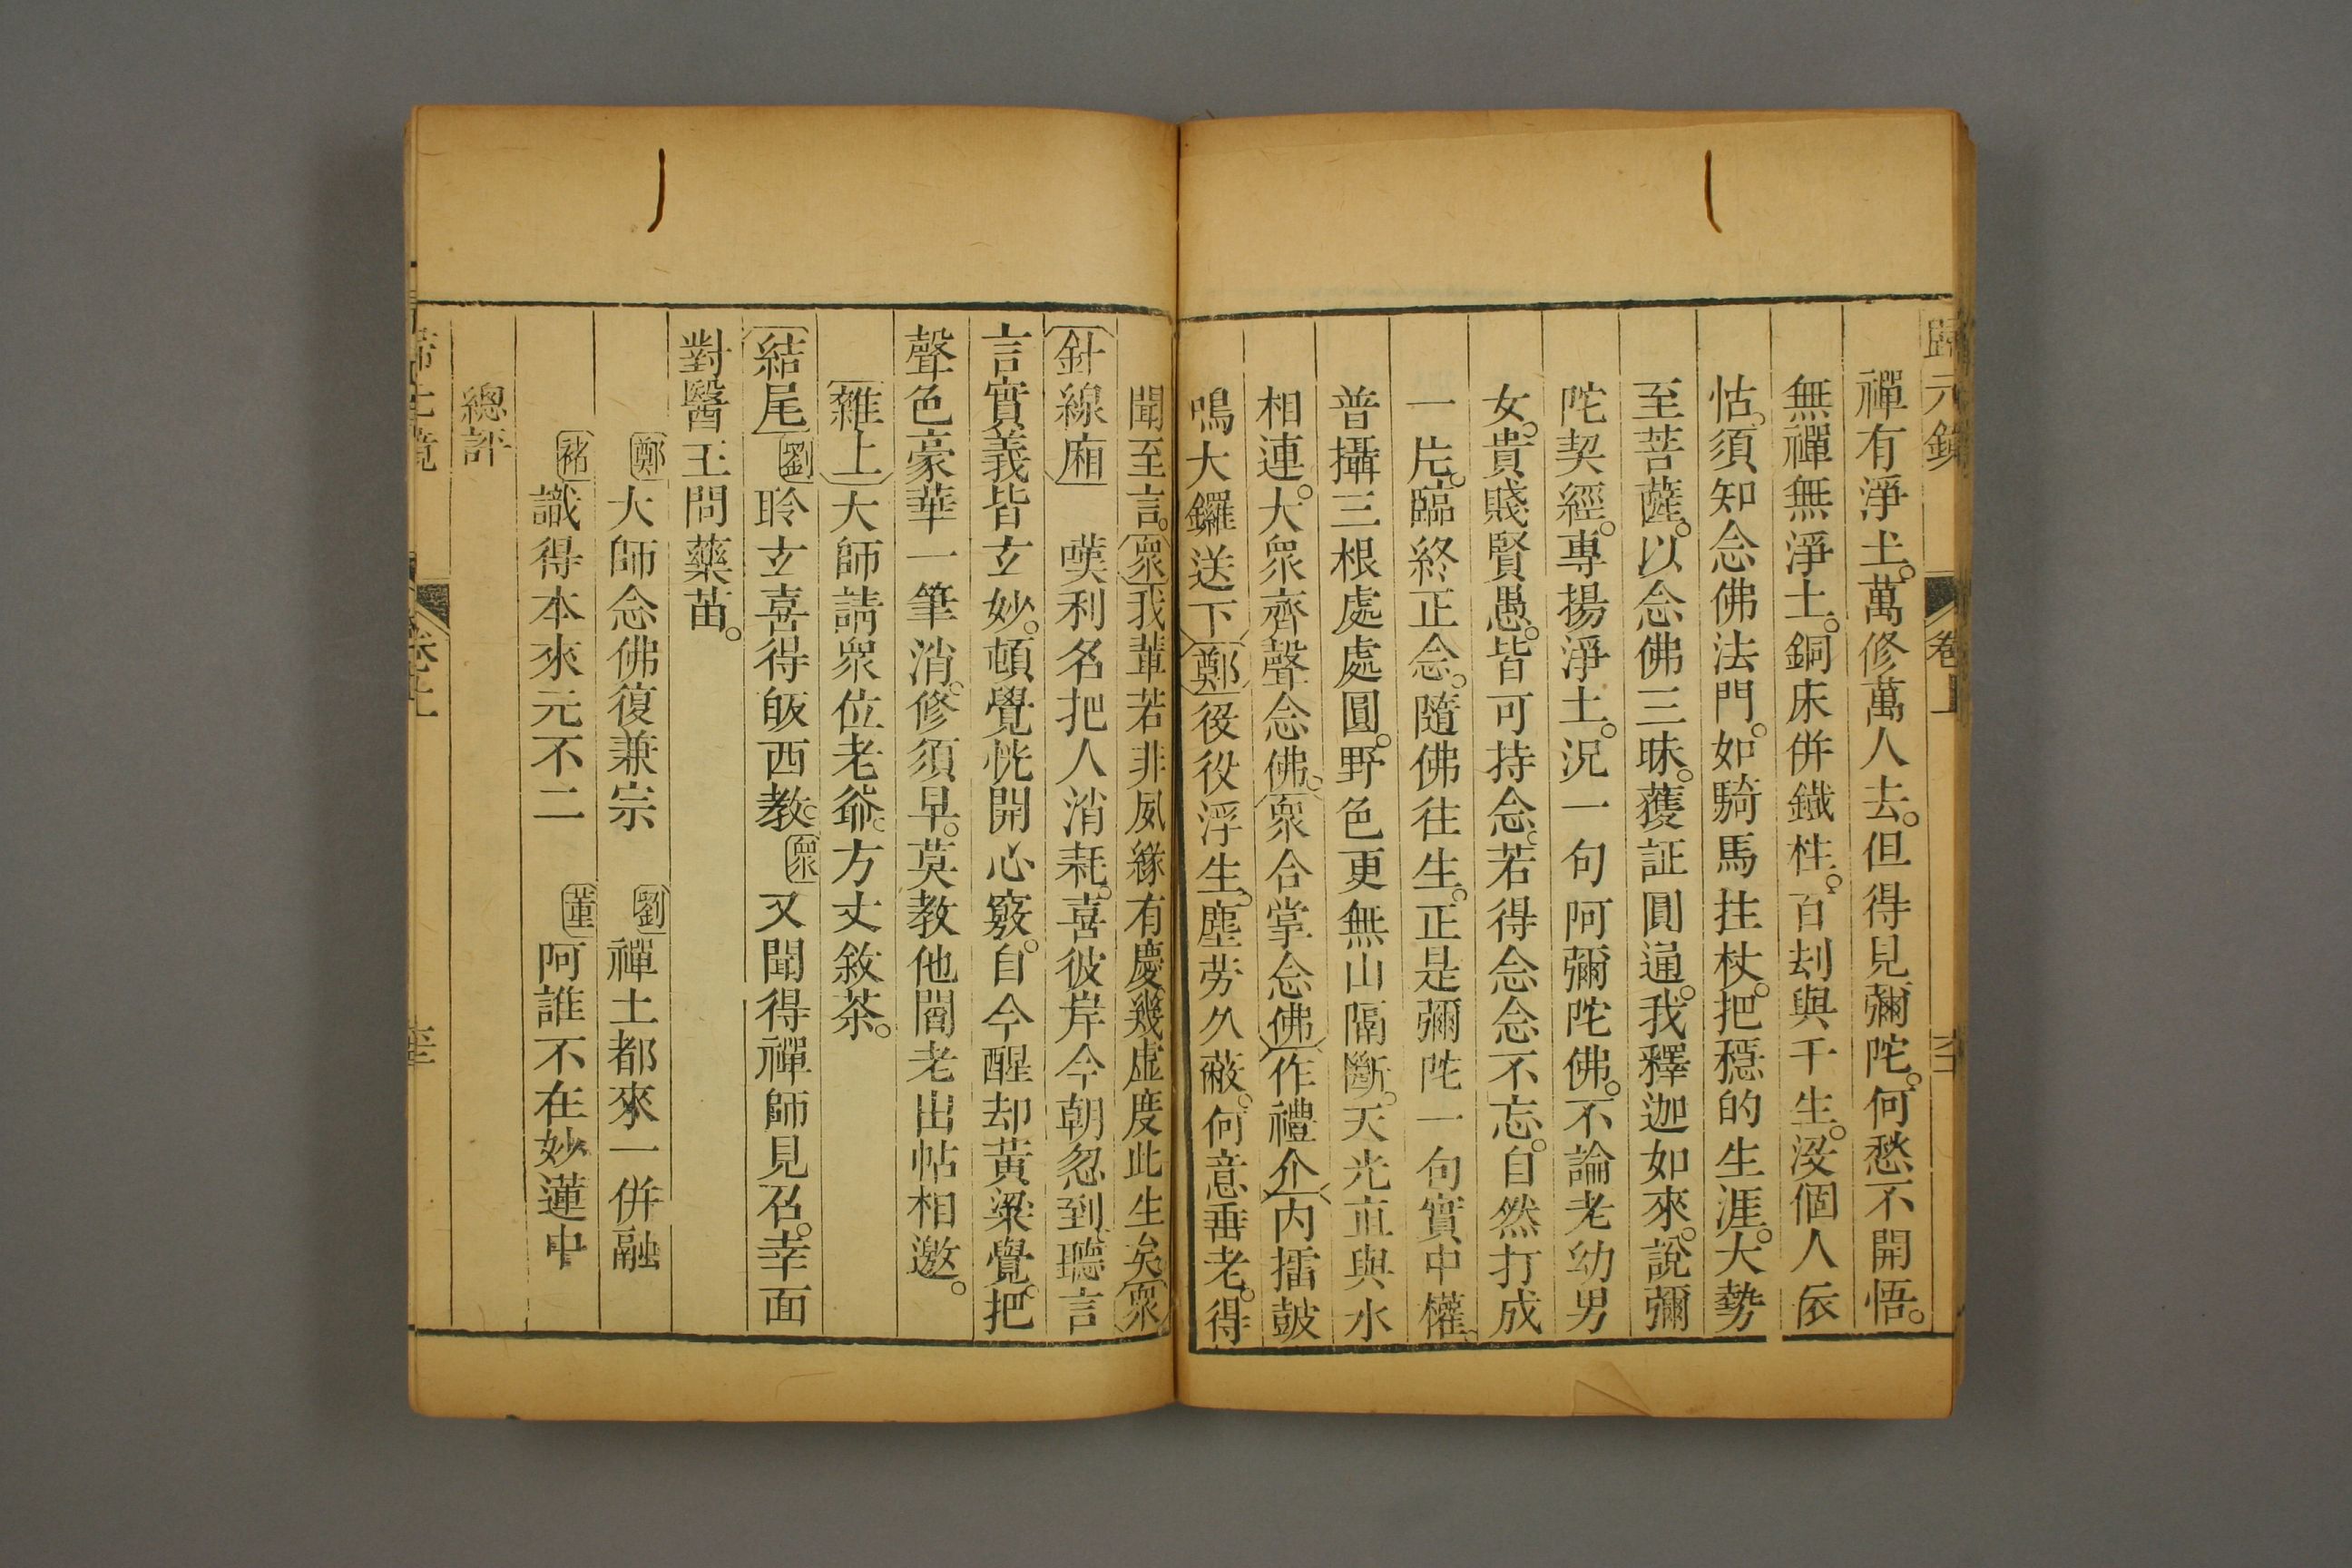 歸元鏡 卷上
禪有淨土。萬修萬人去。但得見彌陀。何愁不開悟。
無禪無淨土。銅床併鐵柱。百刧與千生。沒個人依
怙。須知念佛法門。如騎馬拄杖。把穩的生涯。大勢
至菩薩。以念佛三昧。獲証圓通。我釋迦如來。說彌
陀契經。專揚淨土。况一句阿彌陀佛。不論老幼男
女。貴賤賢愚。皆可持念。若得念念不忘。自然打成
一片。臨終正念。隨佛往生。正是彌陀一句實中權。
普攝三根處處圓。野色更無山隔斷。天光直與水
相連。大衆齊聲念佛。衆合掌念佛作禮介內擂鼓
鳴大鑼送下鄭役役浮生。塵劳久蔽。何意垂老。得
聞至言。衆我輩若非夙緣有慶幾虛度此生矣衆
針線廂 嘆利名把人消耗。喜彼岸今朝忽到聽言
言實義皆玄妙。頓覺恍開心竅。自今醒却黃粱覺。把
聲色豪華一筆消。修須早。莫教他閻老出帖相邀。
雜上大師請衆位老爺。方丈敘茶。
結尾劉聆玄喜得皈西教。衆又聞得禪師見召。幸面
對醫王問藥苗。
鄭大師念佛復兼宗 劉禪土都來一併融
褚識得本來元不二 董阿誰不在妙蓮中
總評